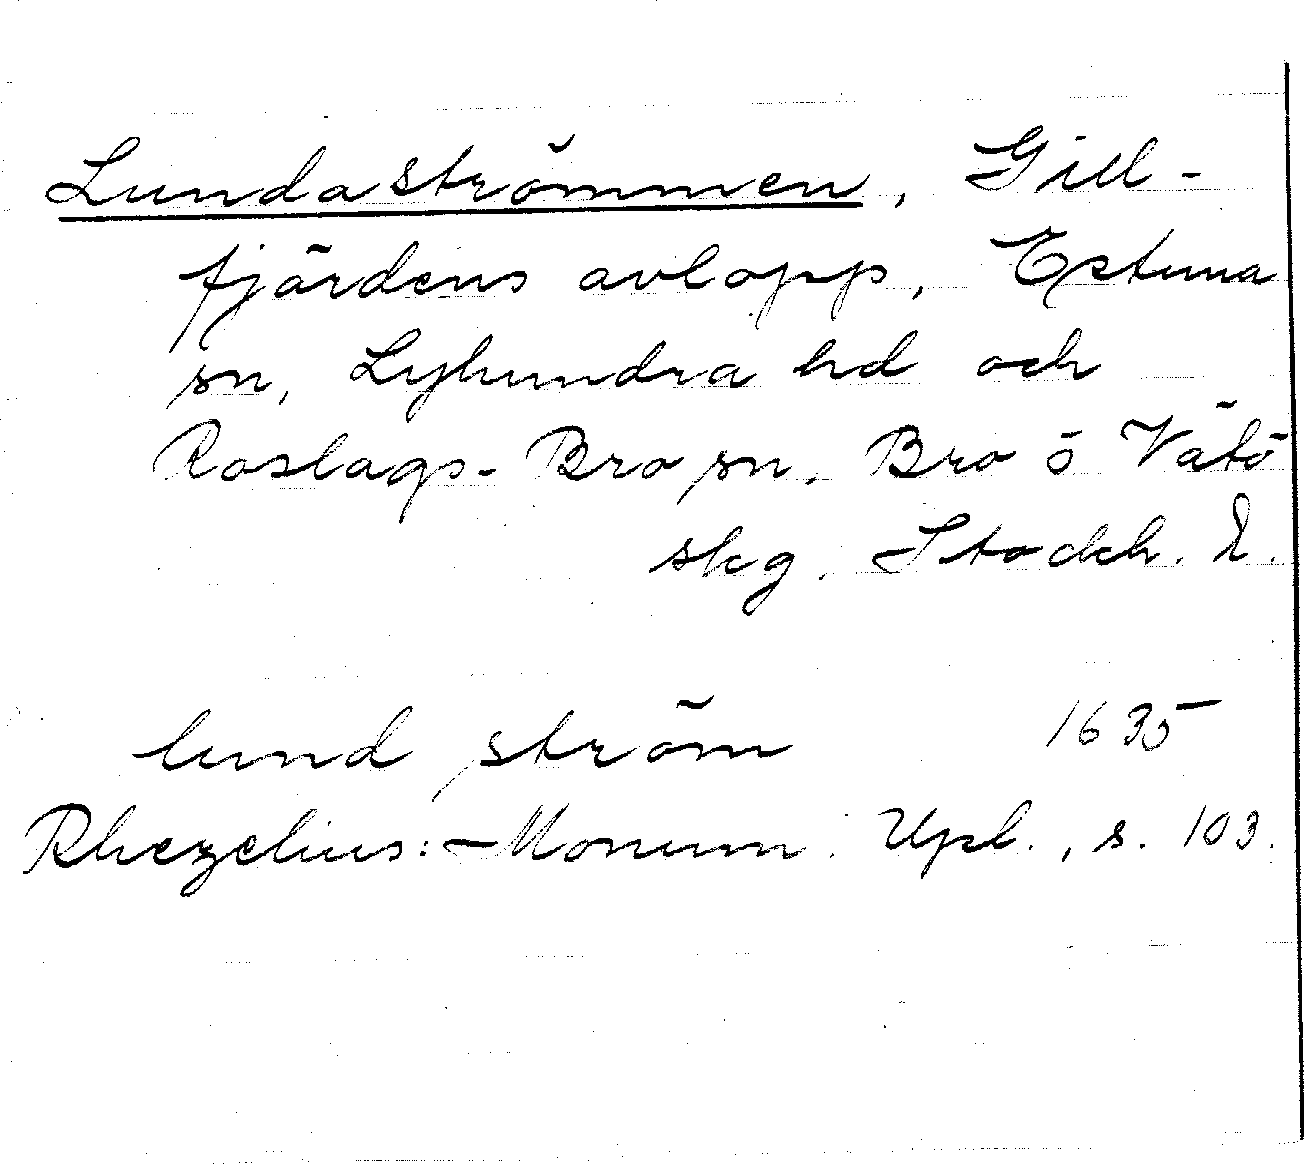 Lundaströmmen, Gill-
fjärdens avlopp, Estuna
sn, Lyhundra hd och
Roslags-Bro sn, Bro o Vätö
skg, Stockh. l.
lund ström 1635
Rhezelius: Monum. Upl., s. 103.